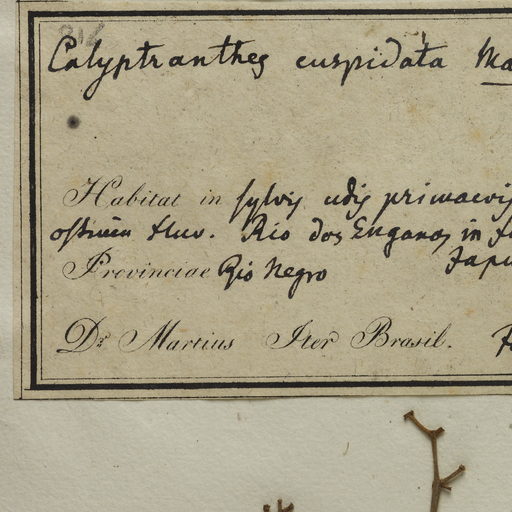 Calyptranthes cuspidata Ma
Habitat in sylvis udis primaevis
ostium fluv. Rio dos Enganos in
Provinciae Rio Negro Japu
Dr. Martius Iter Brasil.